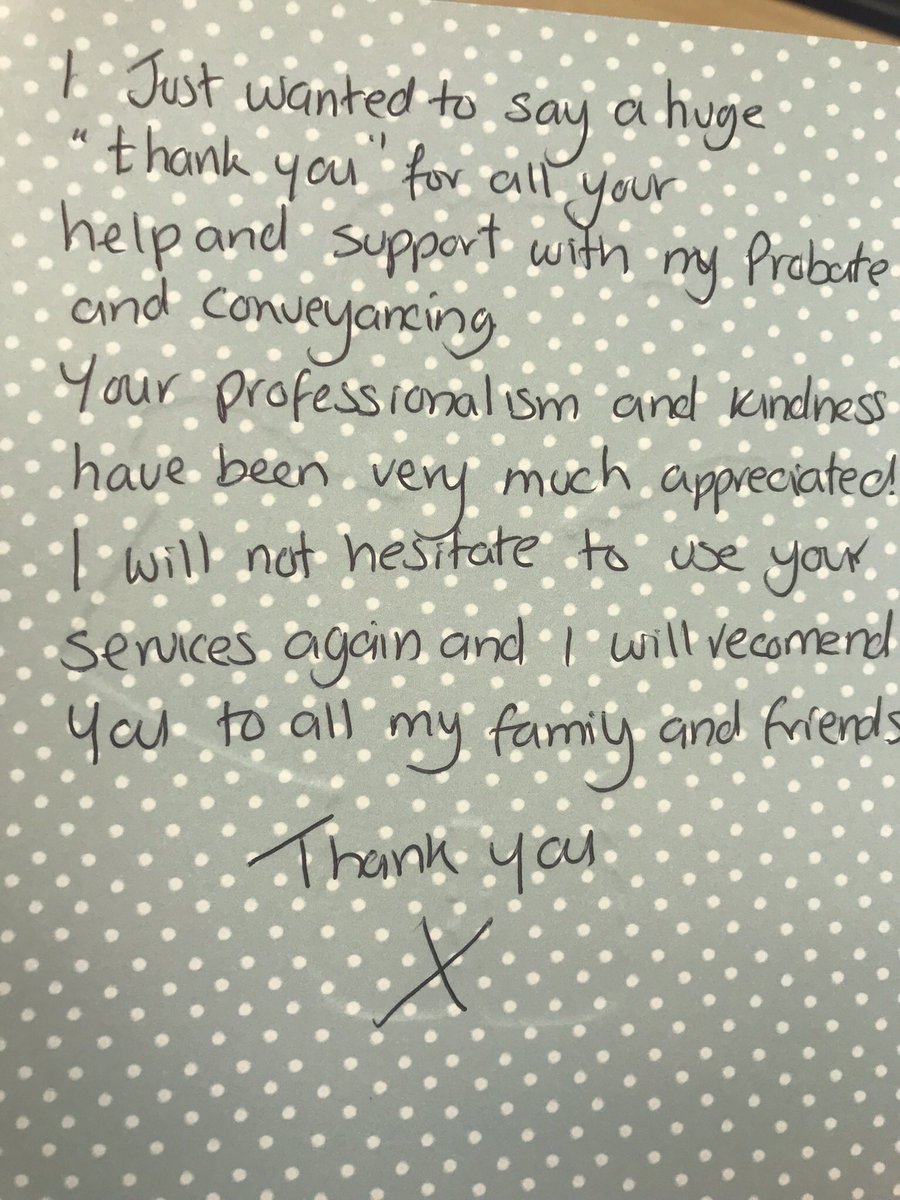 I Just wanted to say a huge
"thank you" for all your
help and support with my Probate
and Conveyancing
Your professionalism and kindness
have been very much appreciated!
I will not hesitate to use your
services again and I will recomend
you to all my famiy and friends
Thank you
X